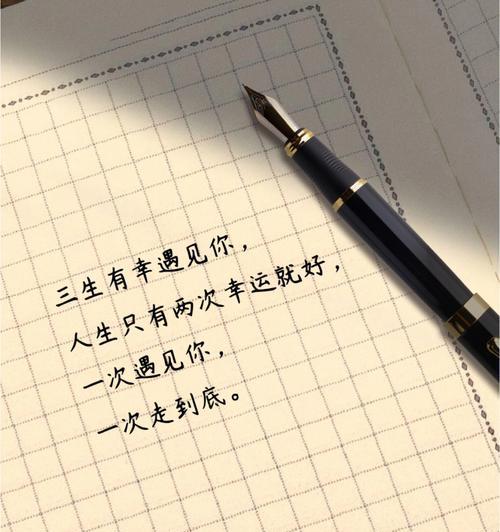 三生有幸遇见你，
人生只有两次幸运就好，
一次遇见你，
一次走到底。